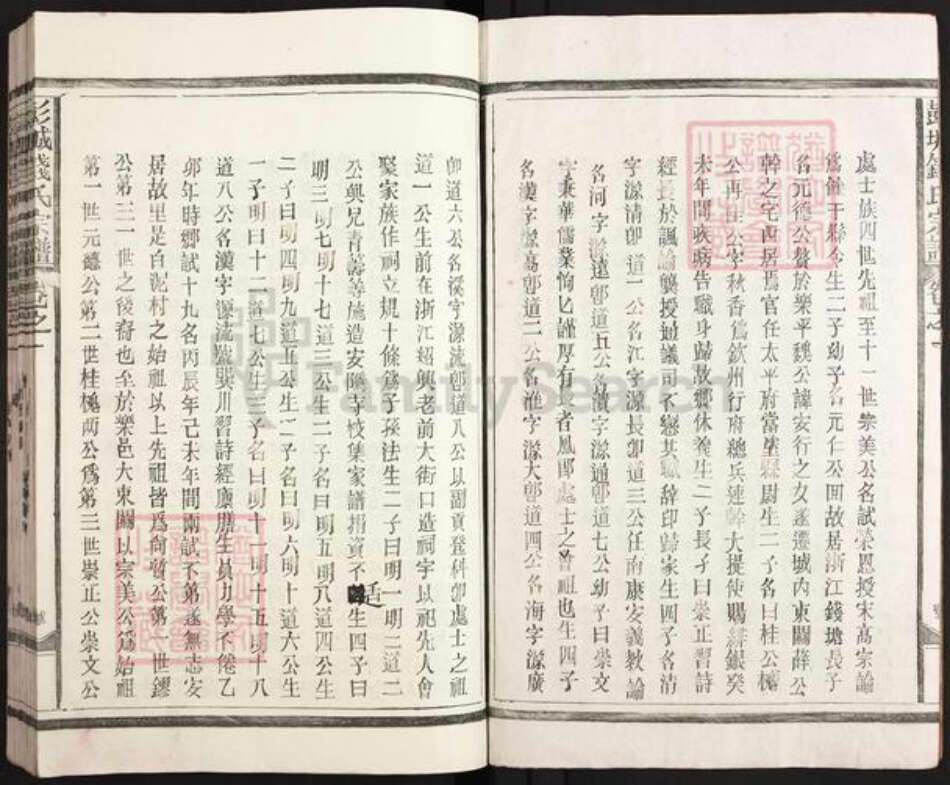 處士族四世先祖至十一世崇美公名試榮恩授宋高宗論
爲餘干縣令生二子幼子名元仁公回故居浙江錢塘長子
名元德公贅於樂平魏公諱安行之女遂遷城內東關薛公
幹之宅西居焉官任太平府當塗縣尉生二子名曰桂公槐
公再任公字秋香爲欽州行府總兵連幹大提使賜緋銀癸
未年間疾病告職身歸故鄉休養生二子長子曰崇正習詩
經長於諷論襲授通議司不戀其職辭印歸家生四子名清
字源清卽道一公名江字源長卽道三公任南康安義教諭
名河字源遠卽道五公濱字源通卽道七公幼子曰崇文
字秉華儒業恂匕謹厚有長者風卽處士之曾祖也生四子
名漢字源高卽道二公名淮字源大卽道四公名海字源廣
卽道六公名漢字源流卽道八公以副貢登科卽處士之祖
道一公生前在浙江紹興老前大街口造祠宇以祀先人會
聚家族作祠立規十條爲子孫法生二子曰明一明二道二
公與兄青壽等施造安隱寺校集家譜捐資不适生四子曰
明三明七明十七道三公生二子名曰明五明八道四公生
二子曰明四明九道五公生二子名曰明六明十道六公生
一子明曰十二道七公生三子名曰明十一明十五明十八
道八公名漢字源流號巽川習詩經廩膳生員力學不倦乙
卯年時鄉試十九名丙辰年己未年間兩試不第遂無志安
居故里是白泥村之始祖以上先祖皆爲尚質公第一世鏐
公第三一世之後裔也至於樂邑大東關以宗美公爲始祖
第一世元德公第二世桂槐兩公爲第三世崇正公崇文公
彭城錢氏宗譜
卷之一
FamilySearch